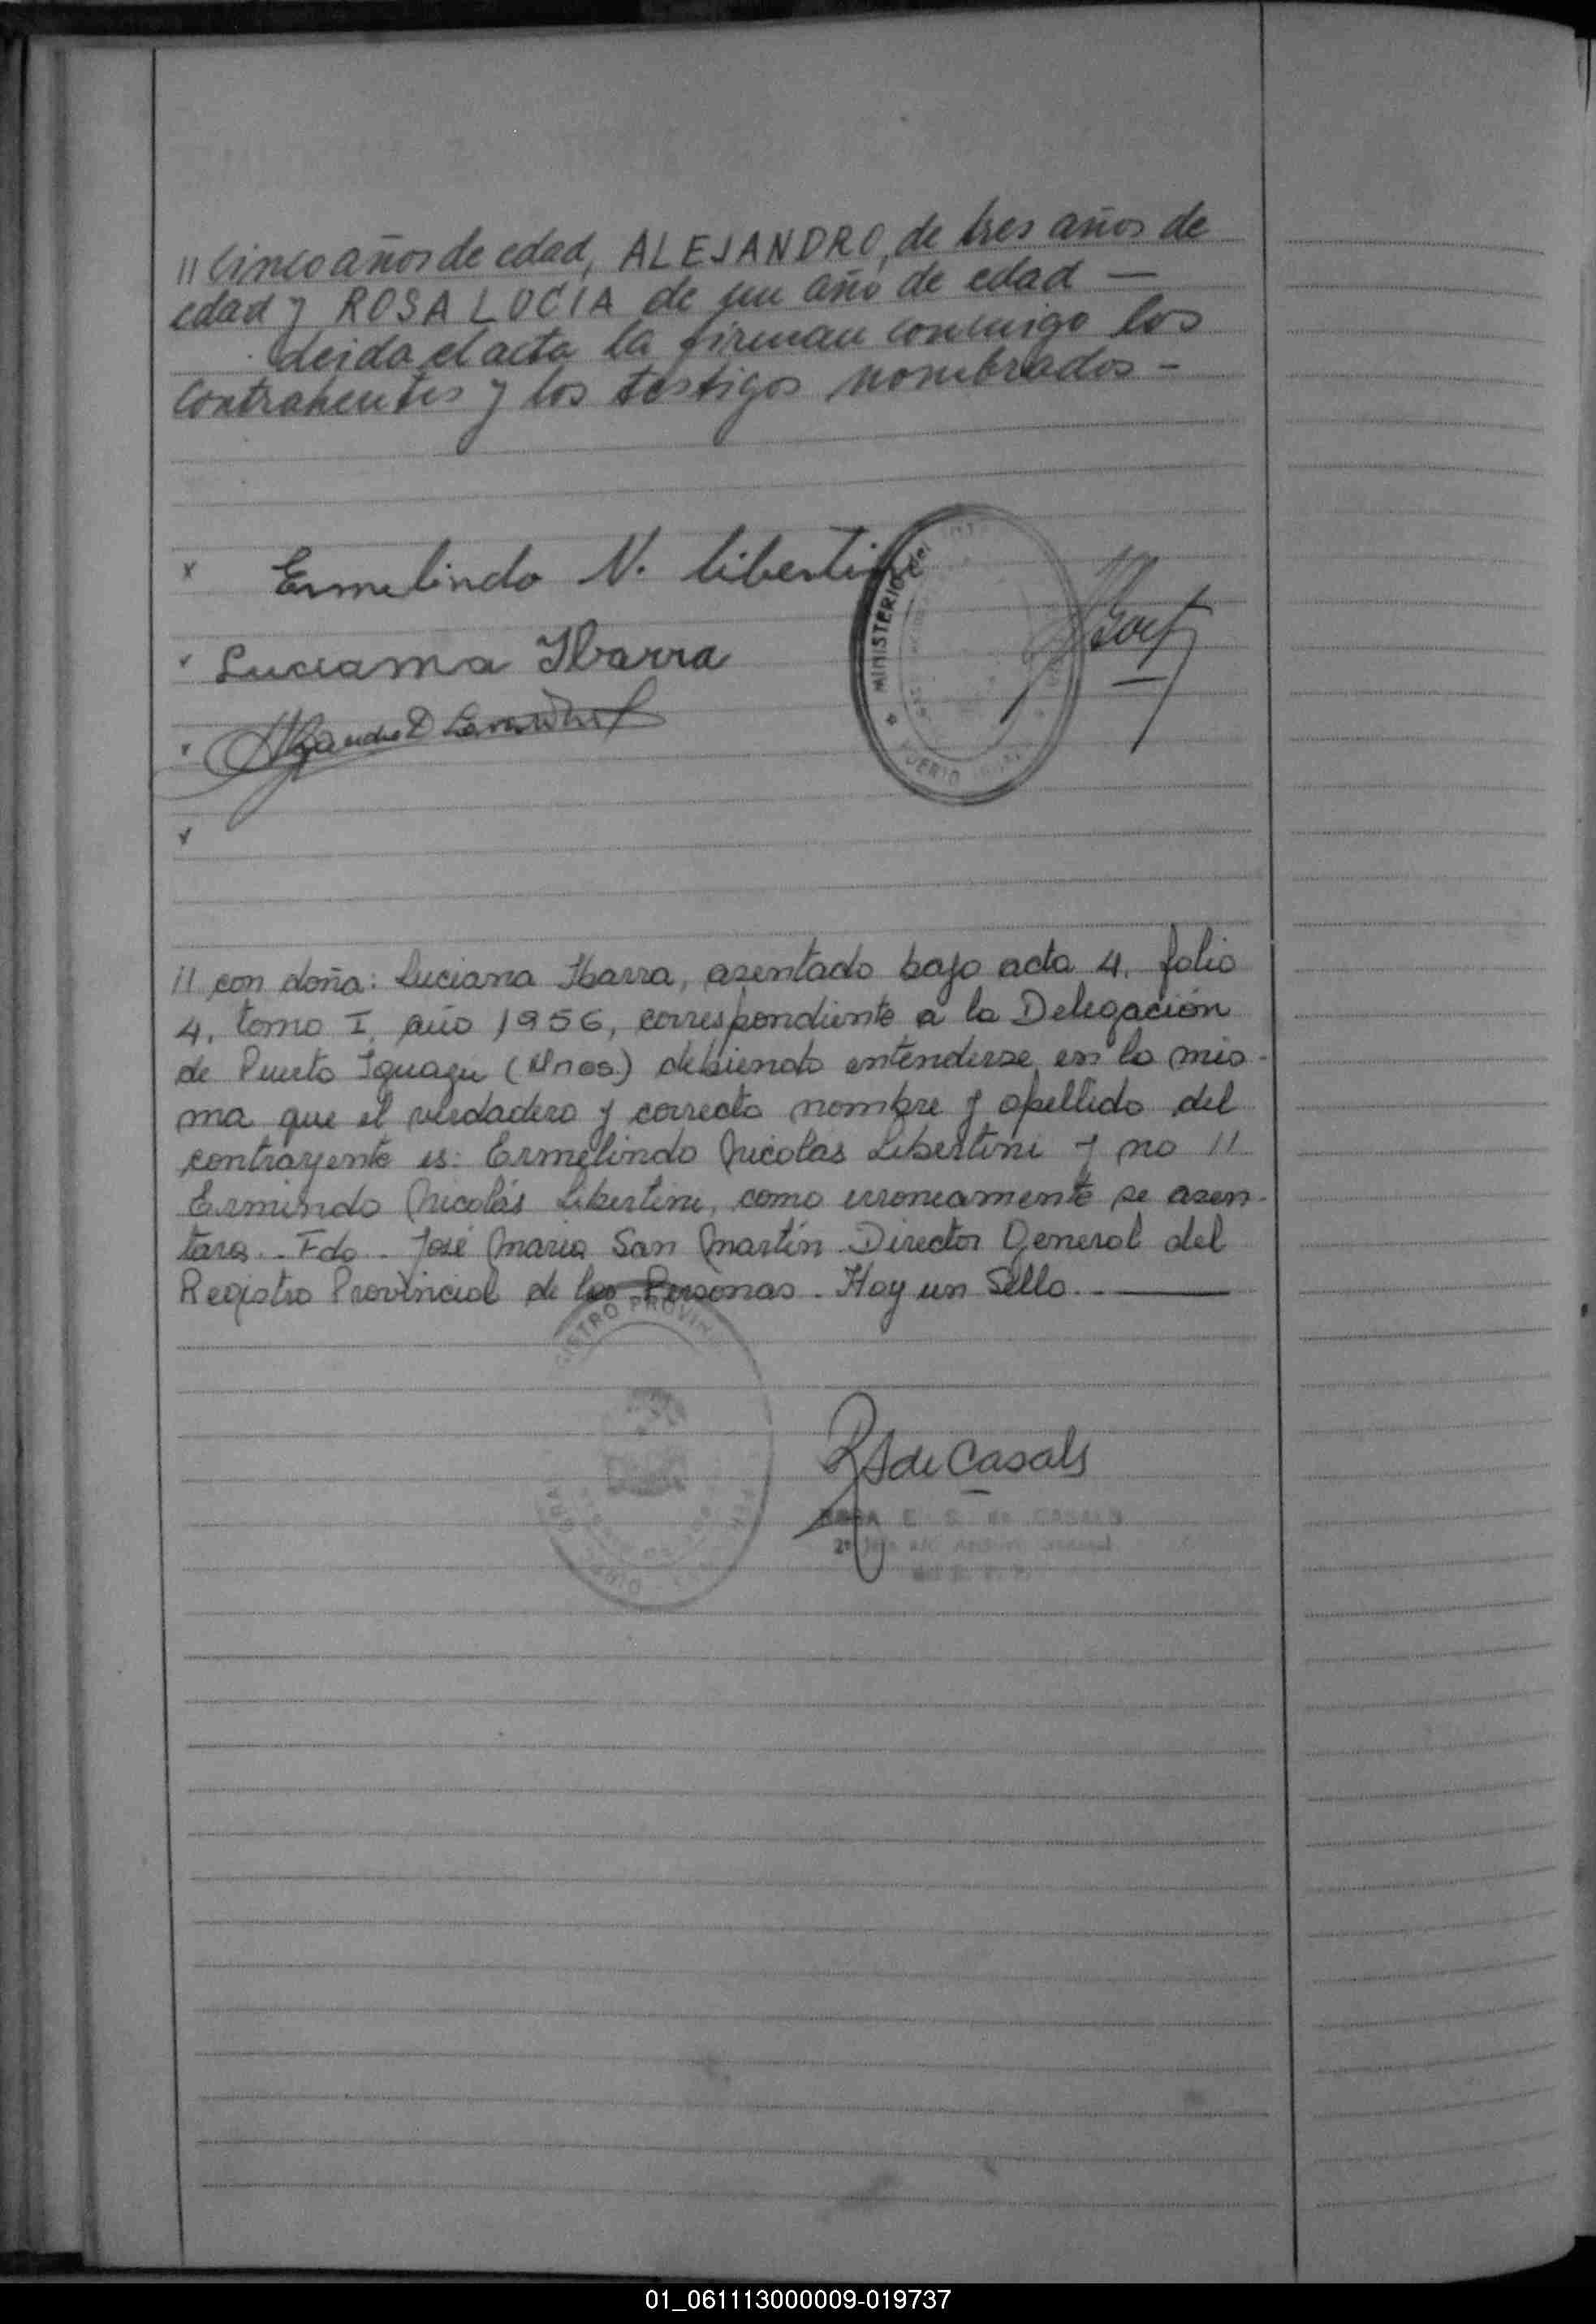 // Cinco años de edad, ALEJANDRO, de tres años de
edad y ROSA LUCIA de un año de edad —
Leida el acta la firman conmigo los
contrahentes y los testigos nombrados -
x Ermelindo N. Libertini
MINISTERIO del
Luciama Ibarra
Alejandro D
// con doña: Luciana Ibarra, asentado bajo acta 4. folio
4, tomo I, año 1956, correspondiente a la Delegación
de Puerto Iguazu (Mnes.) debiendo entenderse en la mis-
ma que el verdadero y correcto nombre y apellido del
contrayente es: Ermelindo Nicolas Libertini y no //
Ermindo Nicolás Libertini, como erroneamente se asen-
tara.- Fdo.- José Maria San Martín. Director General del
Registro Provincial de las Personas. Hay un Sello.-
REGISTRO PROVIN
RS de Casals
E. S. de CASALS
01_061113000009-019737